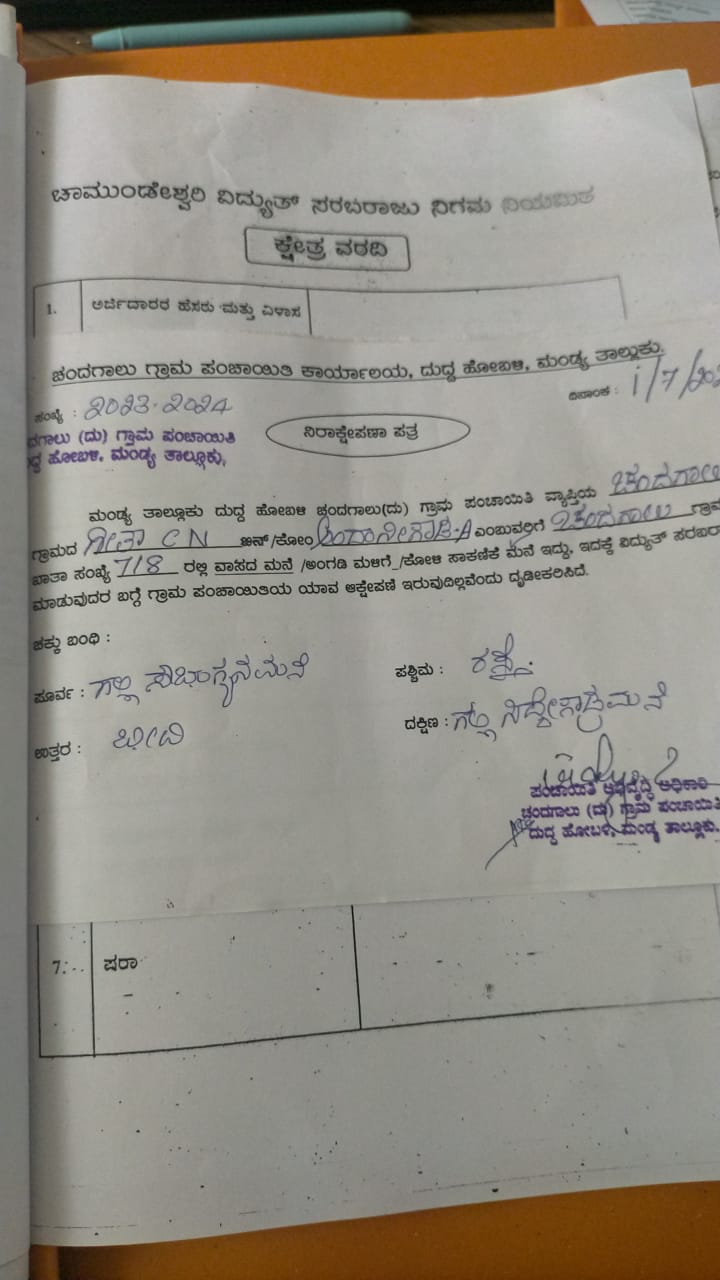 ಚಾಮುಂಡೇಶ್ವರಿ ವಿದ್ಯುತ್ ಸರಬರಾಜು ನಿಗಮ ನಿಯಮಿತ
ಕ್ಷೇತ್ರ ವರದಿ
1. ಅರ್ಜಿದಾರರ ಹೆಸರು ಮತ್ತು ವಿಳಾಸ
ಚಂದಗಾಲು ಗ್ರಾಮ ಪಂಚಾಯಿತಿ ಕಾರ್ಯಾಲಯ, ದುದ್ದ ಹೋಬಳಿ, ಮಂಡ್ಯ ತಾಲ್ಲೂಕು.
ಸಂಖ್ಯೆ : 2023-2024 ದಿನಾಂಕ : 1/7/202
ದಗಾಲು (ದು) ಗ್ರಾಮ ಪಂಚಾಯಿತಿ
ದ್ದ ಹೋಬಳಿ, ಮಂಡ್ಯ ತಾಲ್ಲೂಕು,
ನಿರಾಕ್ಷೇಪಣಾ ಪತ್ರ
ಮಂಡ್ಯ ತಾಲ್ಲೂಕು ದುದ್ದ ಹೋಬಳಿ ಚಂದಗಾಲು(ದು) ಗ್ರಾಮ ಪಂಚಾಯಿತಿ ವ್ಯಾಪ್ತಿಯ ಚಂದಗಾಲು
ಗ್ರಾಮದ ಗೀತಾ C N ಬಿನ್/ಕೋಂ ಎಂಬುವರಿಗೆ ಚಂದಗಾಲು ಗ್ರಾಮ
ಖಾತಾ ಸಂಖ್ಯೆ 718 ರಲ್ಲಿ ವಾಸದ ಮನೆ /ಅಂಗಡಿ ಮಳಿಗೆ /ಕೋಳಿ ಸಾಕಣಿಕೆ ಮನೆ ಇದ್ದು, ಇದಕ್ಕೆ ವಿದ್ಯುತ್ ಸರಬರ
ಮಾಡುವುದರ ಬಗ್ಗೆ ಗ್ರಾಮ ಪಂಚಾಯಿತಿಯ ಯಾವ ಆಕ್ಷೇಪಣೆ ಇರುವುದಿಲ್ಲವೆಂದು ದೃಡೀಕರಿಸಿದೆ.
ಚಕ್ಕು ಬಂಧಿ :
ಪೂರ್ವ : ಗಲ್ಲಿ ಸೌಭಾಗ್ಯನಮನೆ ಪಶ್ಚಿಮ : ರಸ್ತೆ.
ಉತ್ತರ : ಬೀದಿ ದಕ್ಷಿಣ : ಗಲ್ಲಿ ಸಿದ್ದೇಗೌಡ್ರಮನೆ
ಪಂಚಾಯಿತಿ ಅಭಿವೃದ್ಧಿ ಅಧಿಕಾರಿ
ಚಂದಗಾಲು (ದು) ಗ್ರಾಮ ಪಂಚಾಯಿತಿ
ದುದ್ದ ಹೋಬಳಿ, ಮಂಡ್ಯ ತಾಲ್ಲೂಕು.
7. ಷರಾ